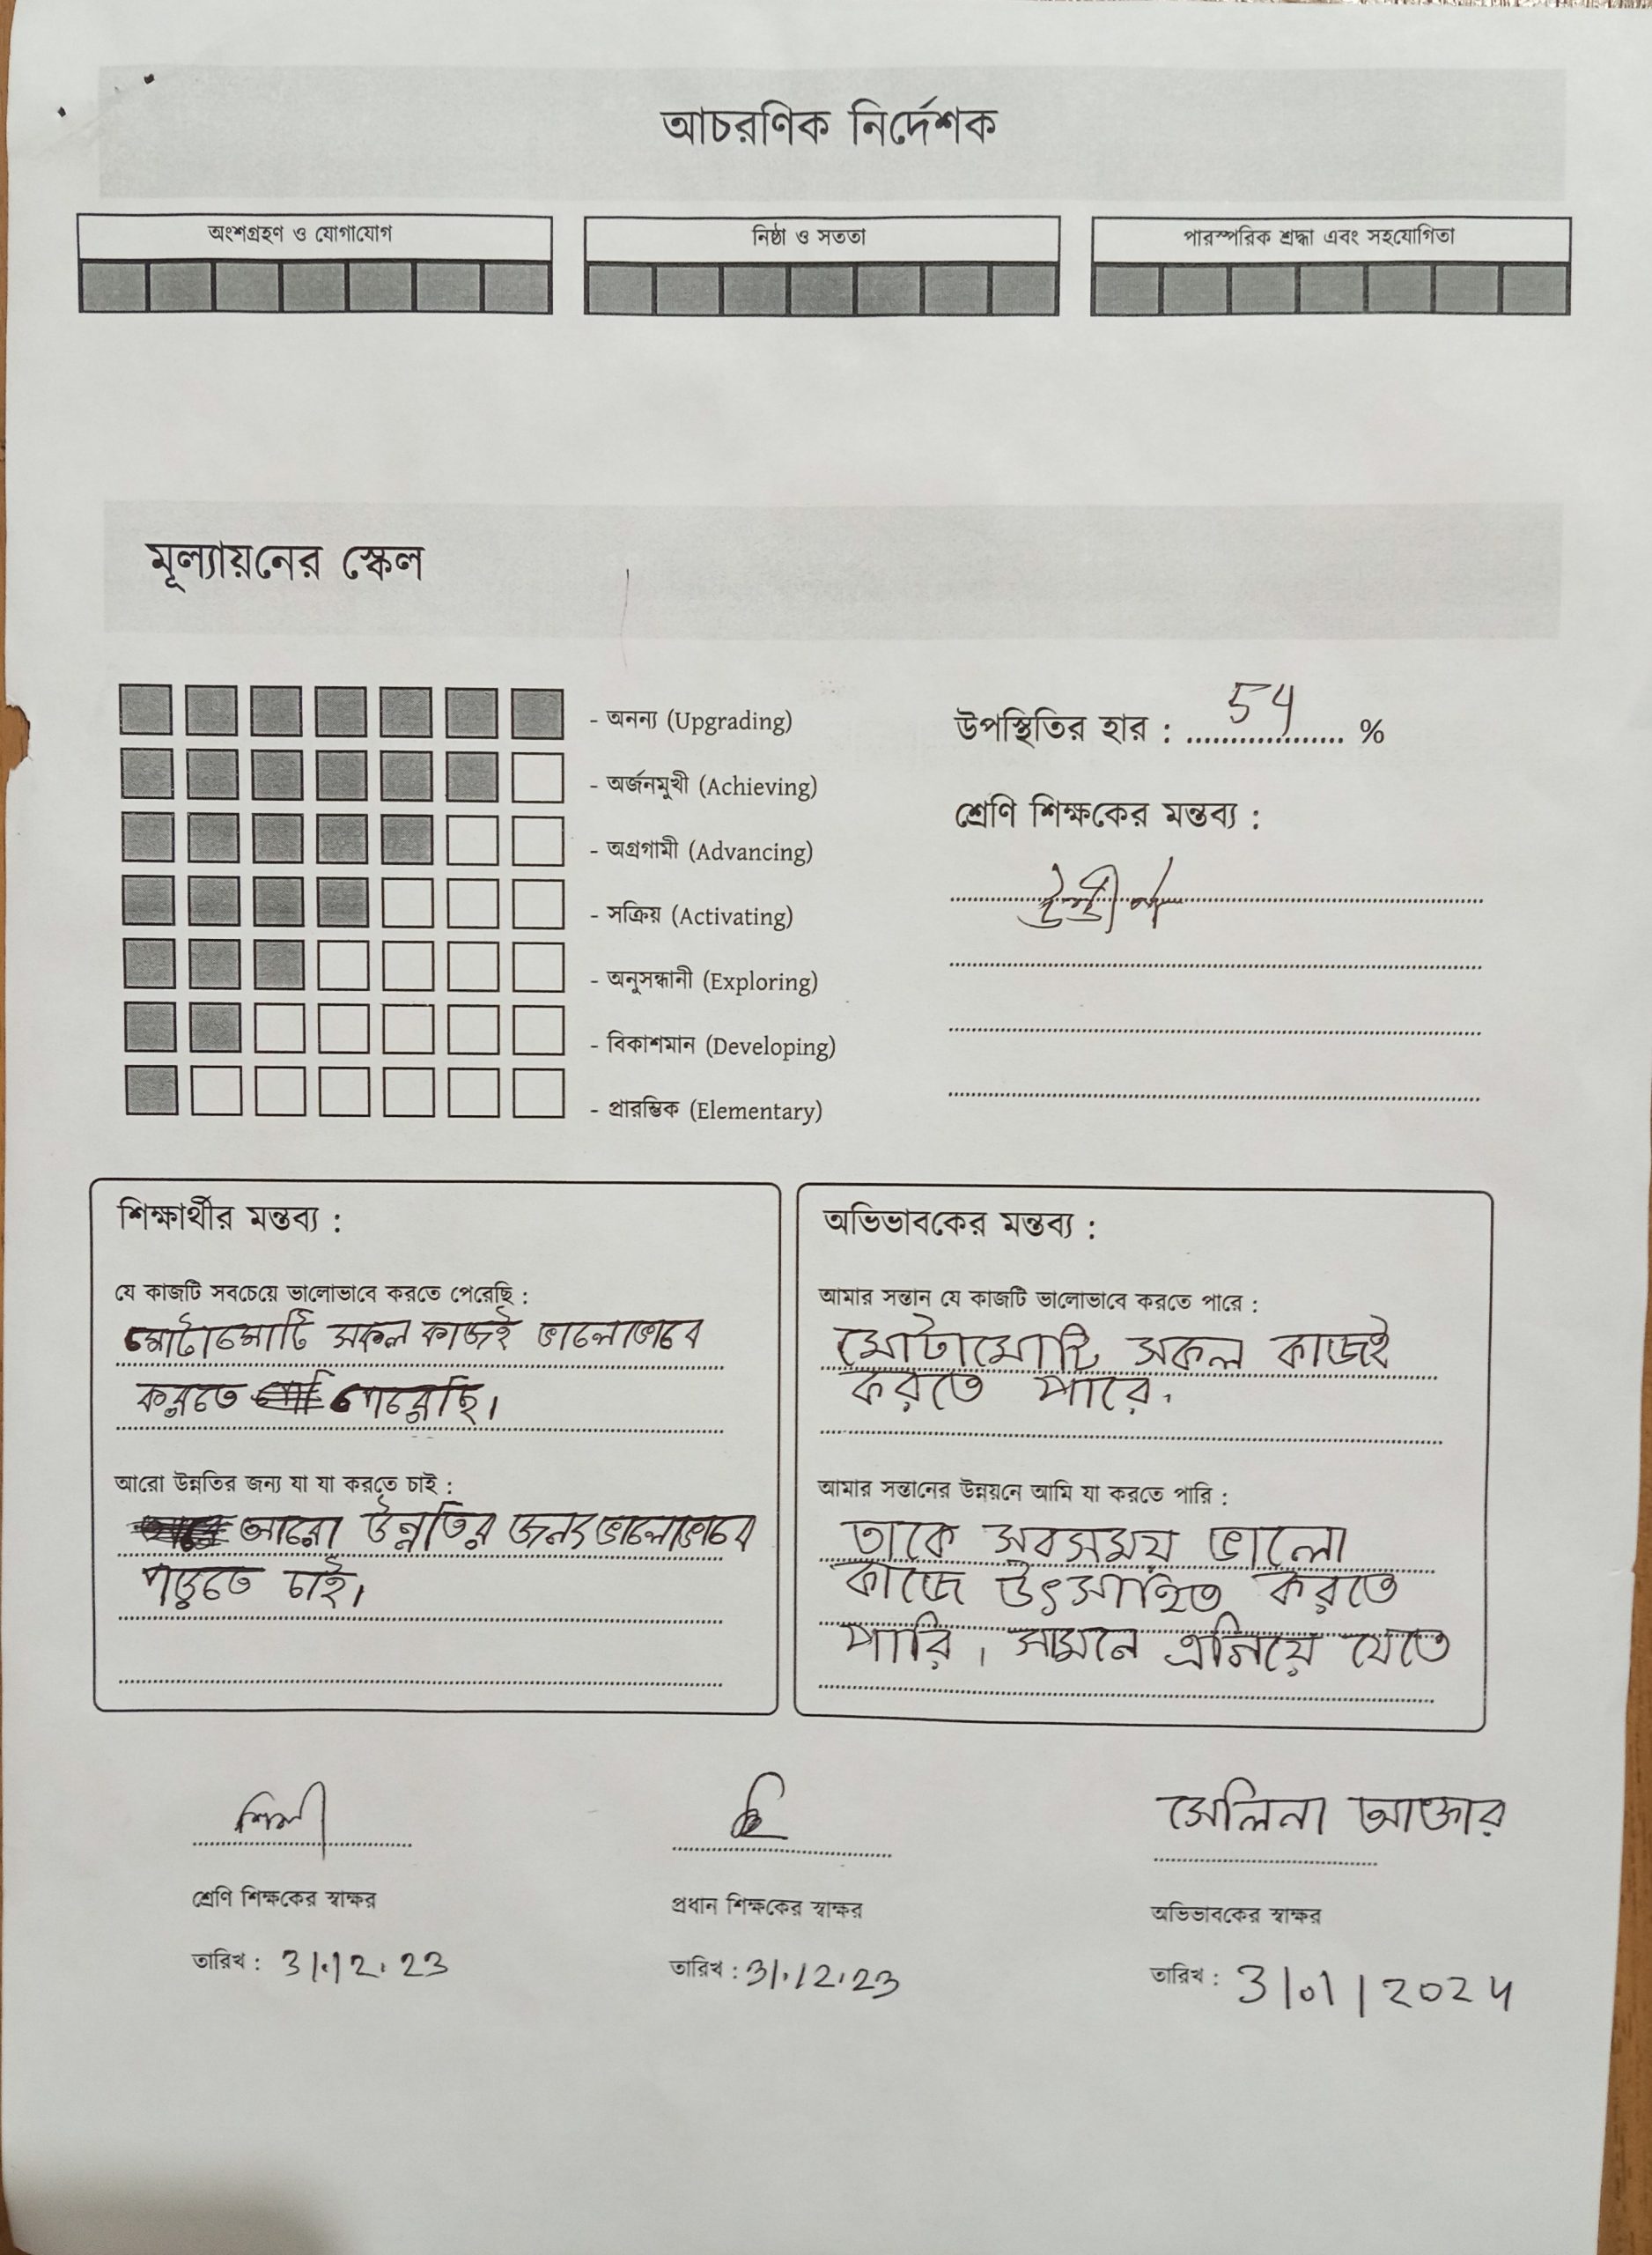 আচরণিক নির্দেশক
অংশগ্রহণ ও যোগাযোগ
নিষ্ঠা ও সততা
পারস্পরিক শ্রদ্ধা এবং সহযোগিতা
মূল্যায়নের স্কেল
- অনন্য (Upgrading)
- অর্জনমুখী (Achieving)
- অগ্রগামী (Advancing)
- সক্রিয় (Activating)
- অনুসন্ধানী (Exploring)
- বিকাশমান (Developing)
- প্রারম্ভিক (Elementary)
উপস্থিতির হার : 54 %
শ্রেণি শিক্ষকের মন্তব্য :
শিক্ষার্থীর মন্তব্য :
যে কাজটি সবচেয়ে ভালোভাবে করতে পেরেছি :
মোটামোটি সকল কাজই ভালোভাবে
করতে পেরেছি।
আরো উন্নতির জন্য যা যা করতে চাই :
আরো উন্নতির জন্য ভালোভাবে
পড়তে চাই।
অভিভাবকের মন্তব্য :
আমার সন্তান যে কাজটি ভালোভাবে করতে পারে :
মোটামোটি সকল কাজই
করতে পারে।
আমার সন্তানের উন্নয়নে আমি যা করতে পারি :
তাকে সবসময় ভালো
কাজে উৎসাহিত করতে
পারি। সামনে এগিয়ে যেতে
শ্রেণি শিক্ষকের স্বাক্ষর
তারিখ : 31.12.23
প্রধান শিক্ষকের স্বাক্ষর
তারিখ : 31.12.23
সেলিনা আক্তার
অভিভাবকের স্বাক্ষর
তারিখ : 3/01/2024